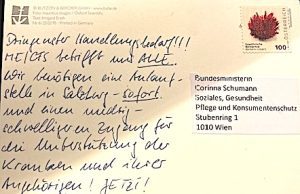 © BUTZON & BERCKER GMBH · www.bube.de
Printed in Germany
Dringender Handlungsbedarf!!!
ME/CFS betrifft uns ALLE
Wir benötigen eine Anlauf-
stelle in Salzburg – sofort
und einen niedrig-
schwelligen Zugang für
die Unterstützung der
Kranken und ihrer
Angehörigen! JETZT!
100
Bundesministerin
Corinna Schumann
Soziales, Gesundheit
Pflege und Konsumentenschutz
Stubenring 1
1010 Wien